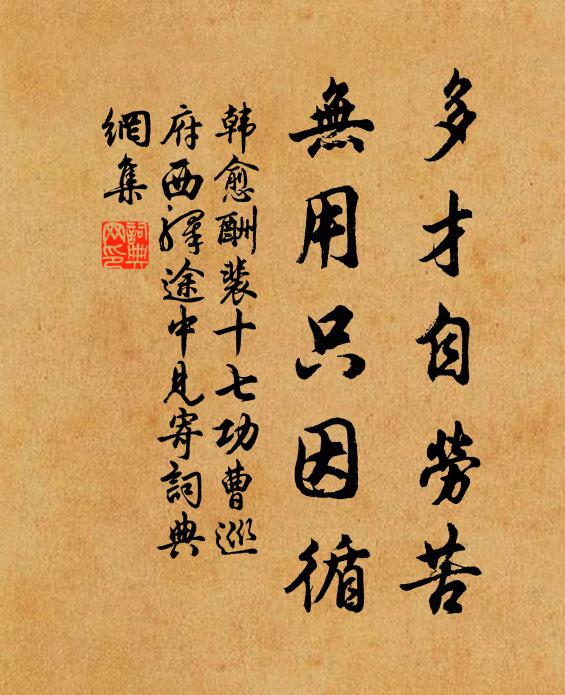 多才自勞苦
無用只因循
韩愈酬裴十七功曹巡
府西驛途中見寄詞典
網集
詞典
网印